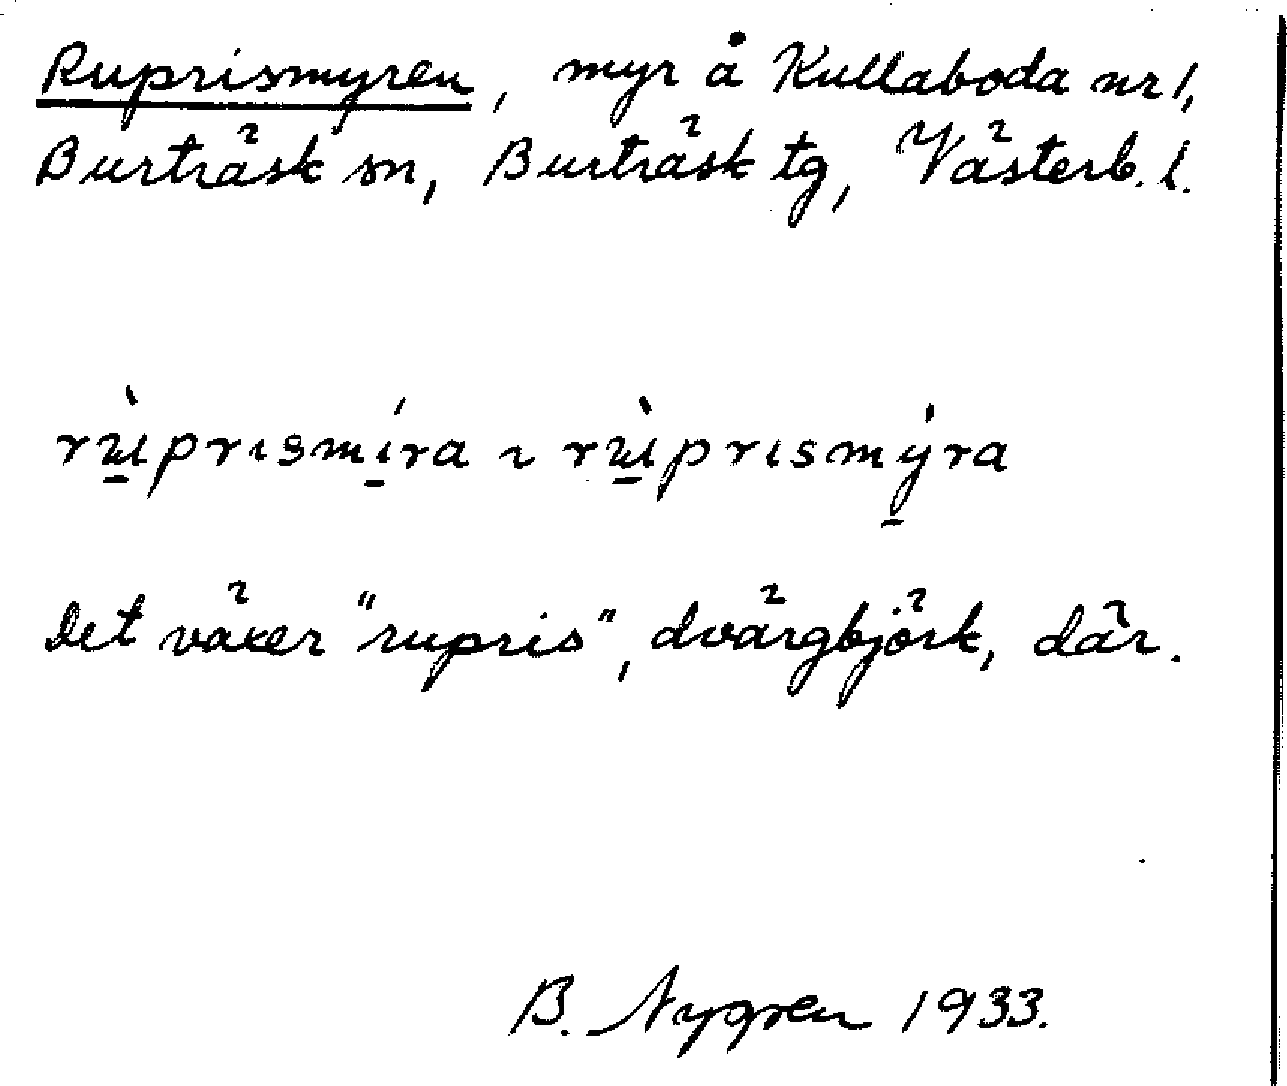 Ruprismyren, myr å Kullaboda nr 1,
Burträsk sn, Burträsk tg, Västerb. l.
rὺprismíra ~ rὺprismýra
Det växer "rupris", dvärgbjörk, där.
B. Nygren 1933.